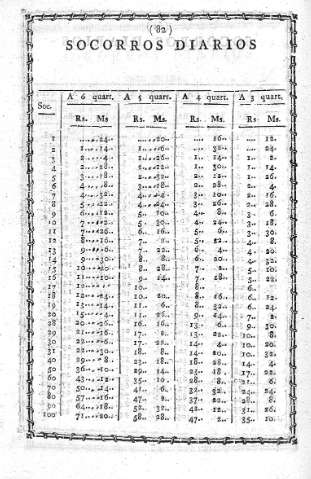 (82)
SOCORROS DIARIOS
Soc. A 6 quart. A 5 quart. A 4 quart. A 3 quart.
Rs. Ms Rs. Ms. Rs. Ms. Rs. Ms.
1 ....24.. ....20.. ....16.. .... 12.
2 ..1..14.. ..1...6.. ....32.. .... 24.
3 ..2...4.. ..1..26.. ..1..14.. ..1.. 2.
4 ..2..28.. ..2..12.. ..1..30.. ..1.. 14.
5 ..3..18.. ..2..32.. ..2..12.. ..1.. 26.
6 ..4...8.. ..3..18.. ..2..28.. ..2.. 4.
7 ..4..32.. ..4...4.. ..3..10.. ..2.. 16.
8 ..5..22.. ..4..24.. ..3..26.. ..2.. 28.
9 ..6..12.. ..5..10.. ..4...8.. ..3.. 6.
10 ..7...2.. ..5..30.. ..4..24.. ..3.. 18.
11 ..7..26.. ..6..16.. ..5...6.. ..3.. 30.
12 ..8..16.. ..7...2.. ..5..22.. ..4.. 8.
13 ..9...6.. ..7..22.. ..6...4.. ..4.. 20.
14 ..9..30.. ..8...8.. ..6..20.. ..4.. 32.
15 10..20.. ..8..28.. ..7...2.. ..5.. 10.
16 11..10.. ..9..14.. ..7..18.. ..5.. 22.
17 10.. ..8.. ..6..
18 12..24.. 10..20.. ..8..16.. ..6.. 12.
19 13..14.. 11...6.. ..8..32.. ..6.. 24.
20 11..26.. ..9..14.. ..7.. 2.
28 16..16.. 13...6.. ..9.. 30.
29 17...2.. 13..22.. 10.. 8.
30 17..22.. 14...4.. 10.. 20.
18...8.. 14..20.. 10.. 32.
40 23..18.. 18..28.. 14.. 4.
50 36..10.. 29..14.. 23..18.. 17.. 22.
60 43..12.. 35..10.. 28...8.. 21.. 6.
70 50..14.. 41...6.. 32..32.. 24.. 24.
80 57..16.. 47...2.. 37..22.. 28.. 8.
90 64..18.. 52..32.. 42..12.. 31.. 26.
100 71..20.. 58..28.. 47...2.. 35.. 10.